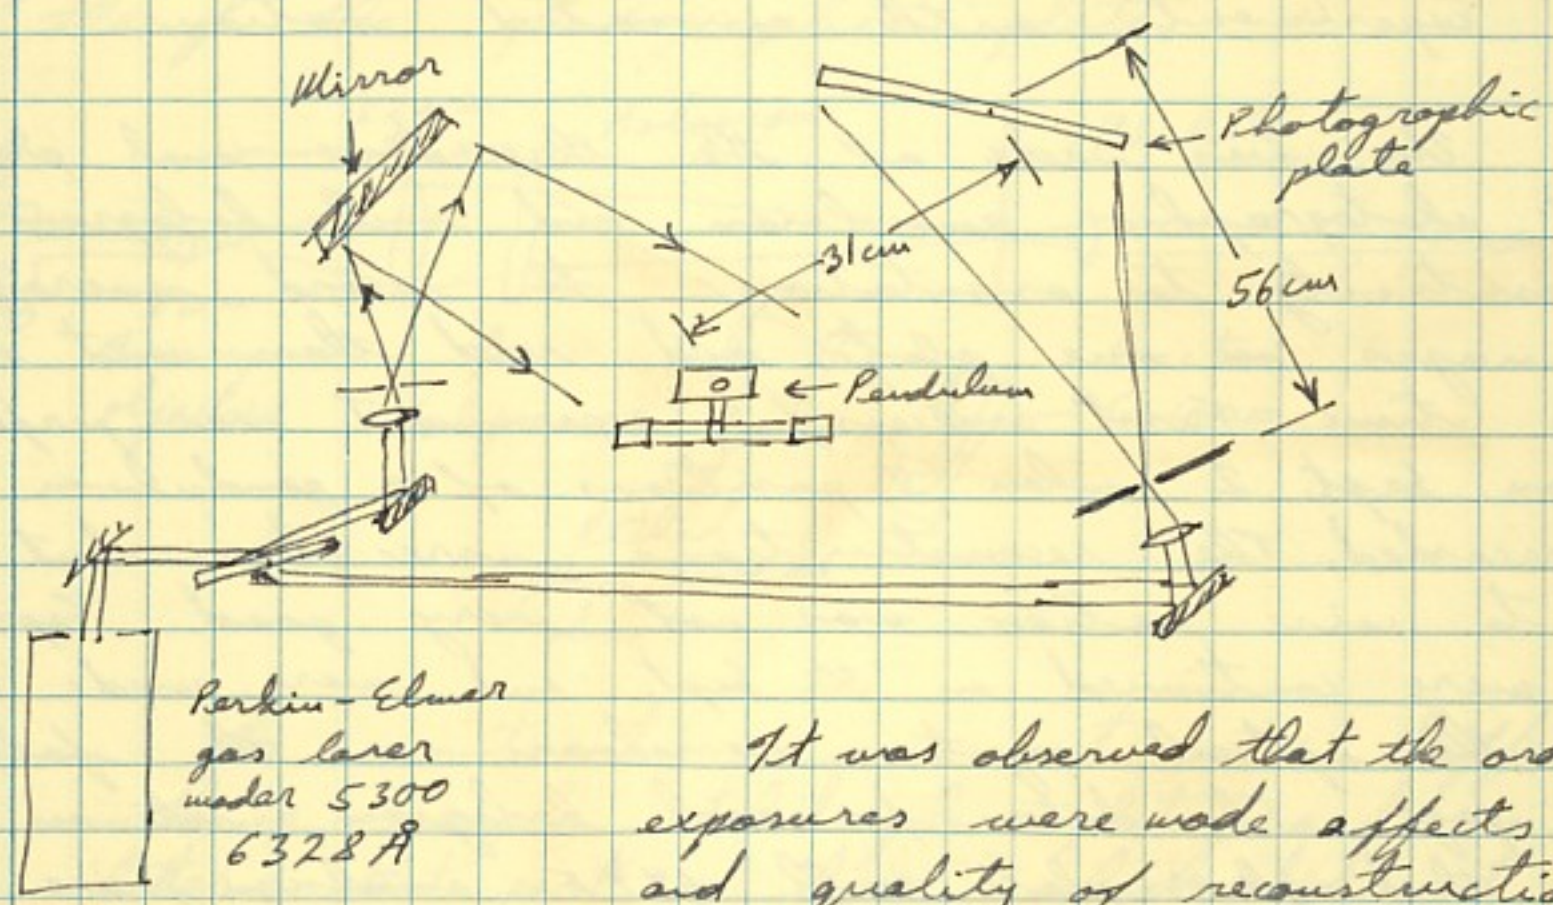 Mirror
Photographic
plate
31cm
56cms
← Pendulum
Perkin-Elmer
gas laser
model 5300
6328Å
It was observed that the
exposures were made affects
and quality of